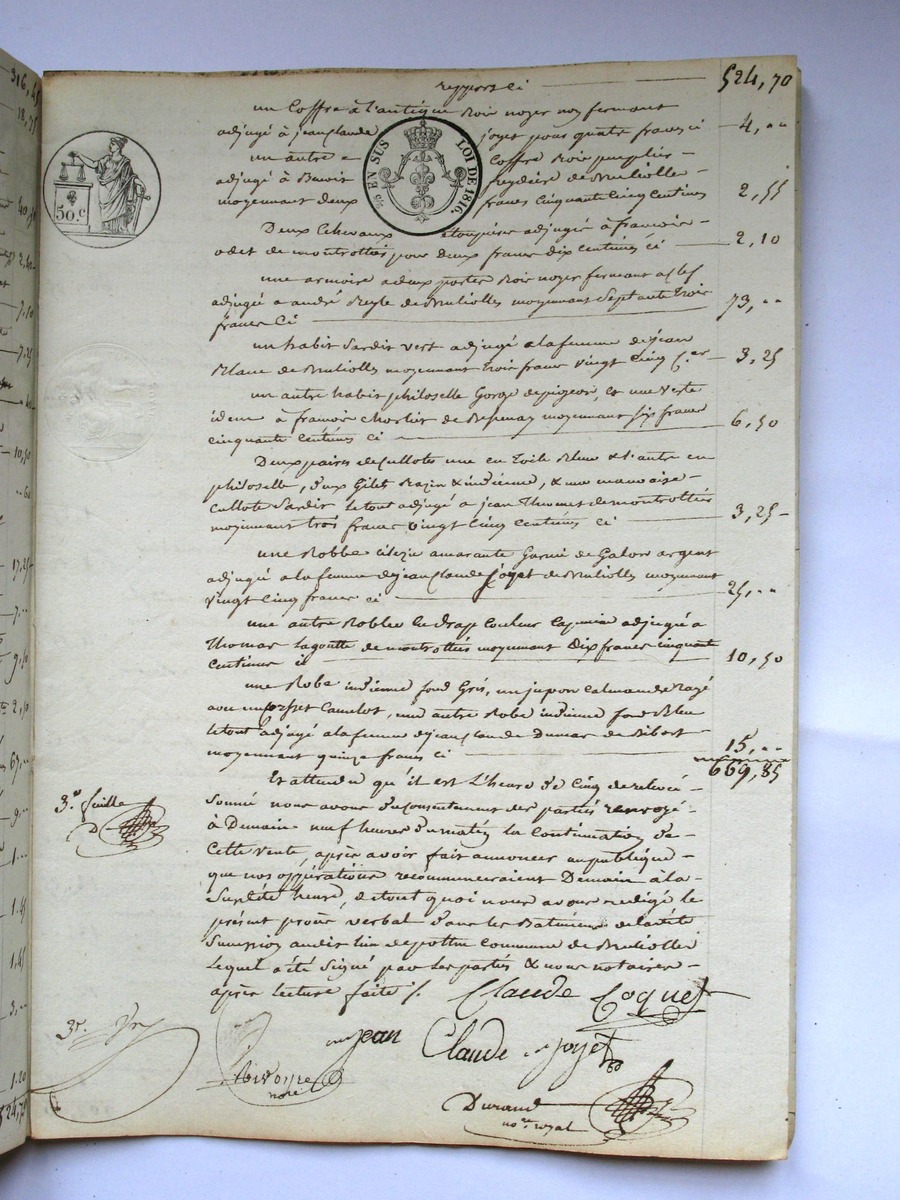 report ci 524,70
un Coffre à l'antique Bois noyer non fermant
adjugé à jean Claude joyet pour quatre francs ci 4,..
un autre Coffre Bois peuplier
adjugé à Benoit de Brulliolle
moyennant deux francs Cinquante Cinq Centimes 2,55
EN SUS LOI DE 1816.
50.c
Deux Chevaux adjugés à francois
odet de montrottier pour Deux francs dix centimes ci 2,10
une armoire a deux portes Bois noyer fermant a clef
adjugé a andré de Brulliolles moyennant Septante trois
francs Ci 73,..
un habit Sardis vert adjugé a la femme de jean
Blanc de Brulliolles moyennant trois francs vingt Cinq C.es 3,25
un autre habit philoselle Gorge de pigeon, et une Veste
idem à francois de moyennant six francs
cinquante Centimes ci 6,50
Deux paires de Cullottes une en toile Bleue & l'autre en
philoselle, deux Gilets Bazin & indienne, & une mauvaise
Cullotte Sardis le tout adjugé a jean Thomas de montrottier
moyennant trois francs vingt Cinq Centimes ci 3,25
une Robbe amarante Garnie de Galons argent
adjugé a la femme de jean Claude joyet de Brulliolles moyennant
vingt Cinq francs ci 25,..
une autre Robbe de drap Couleur Capucine adjugée a
Thomas Lagoutte de montrottier moyennant Dix francs Cinquante
Centimes ci 10,50
une Robe indienne fond Gris, un jupon Calmande Rayé
avec un Corset Camelot, une autre Robe indienne fond Bleu
le tout adjugé a la femme de jean Claude Dumas de Bibost
moyennant quinze francs ci 15,..
669,85
Et attendu qu'il est L'heure de Cinq de relevée
Sonnée nous avons du Consentement des parties renvoyé
à Demain neuf heures du matin la Continuation de
Cette Vente, après avoir fait annoncer au publique
que nos oppérations recommenceraient Demain à la
Susdite heure, de tout quoi nous avons redigé le
présent procès verbal dans les Batiments de la dite
Succession audit lieu de Commune de Brulliolles
Lequel a été Signé par Les parties & nous notaires
après lecture faite /.
3.e feuille
Claude Coquet
jean Claude joyet
3.e
noire
Durand
no.re royal